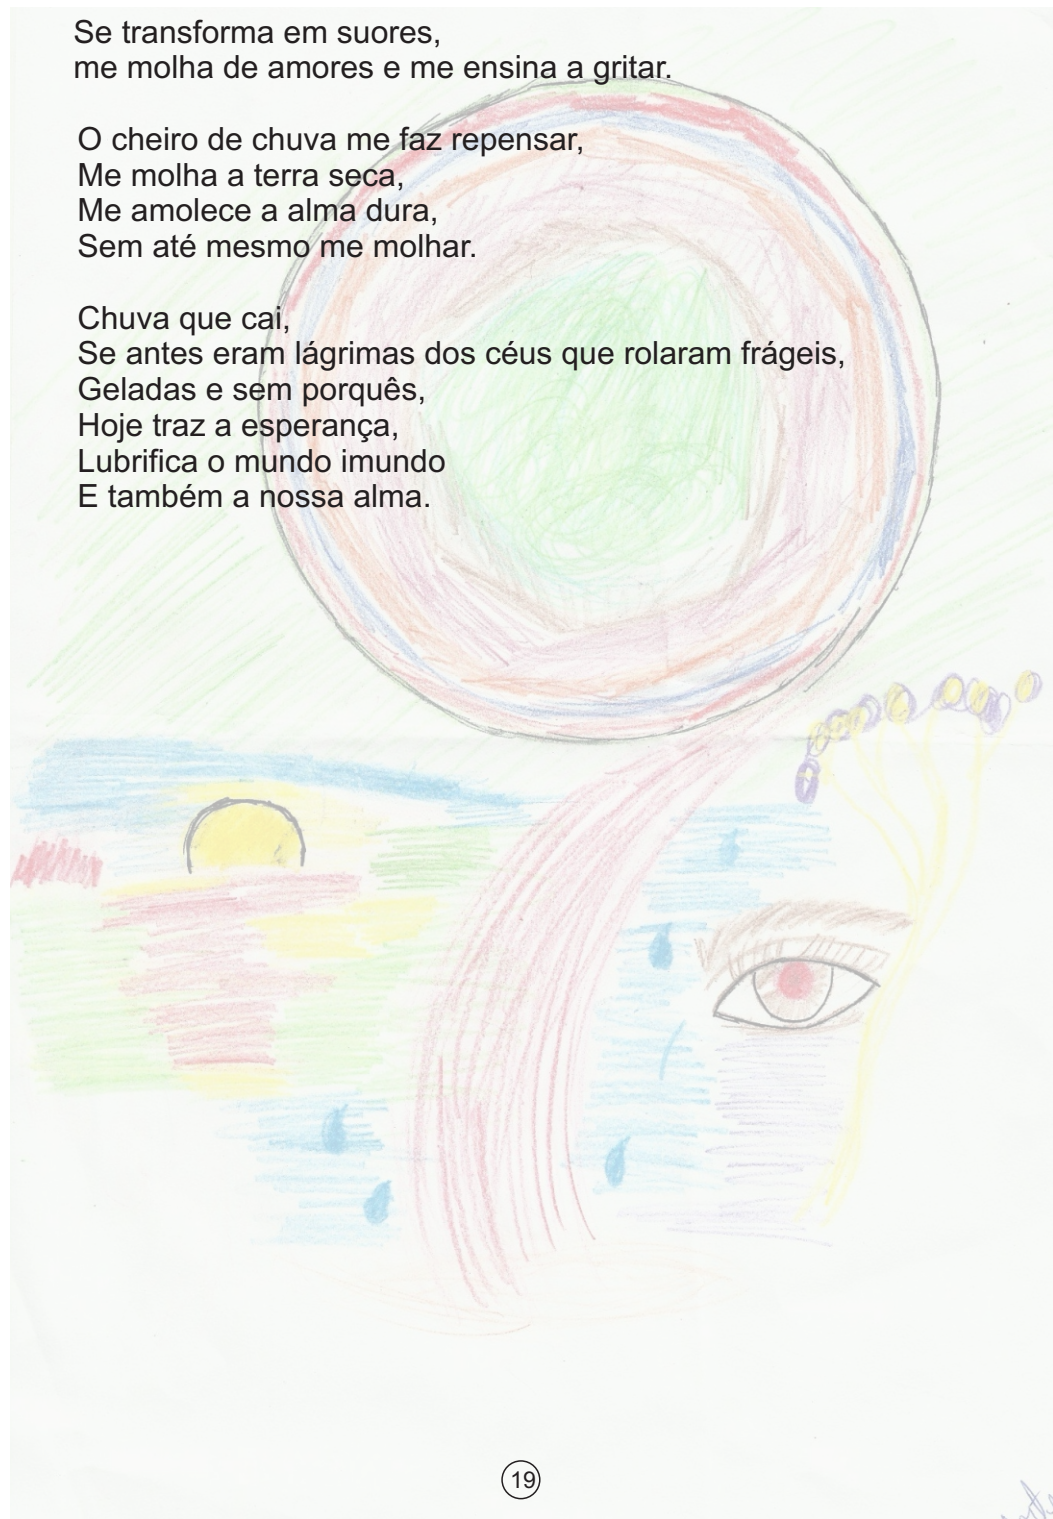 Se transforma em suores,
me molha de amores e me ensina a gritar.
O cheiro de chuva me faz repensar,
Me molha a terra seca,
Me amolece a alma dura,
Sem até mesmo me molhar.
Chuva que cai,
Se antes eram lágrimas dos céus que rolaram frágeis,
Geladas e sem porquês,
Hoje traz a esperança,
Lubrifica o mundo imundo
E também a nossa alma.
19